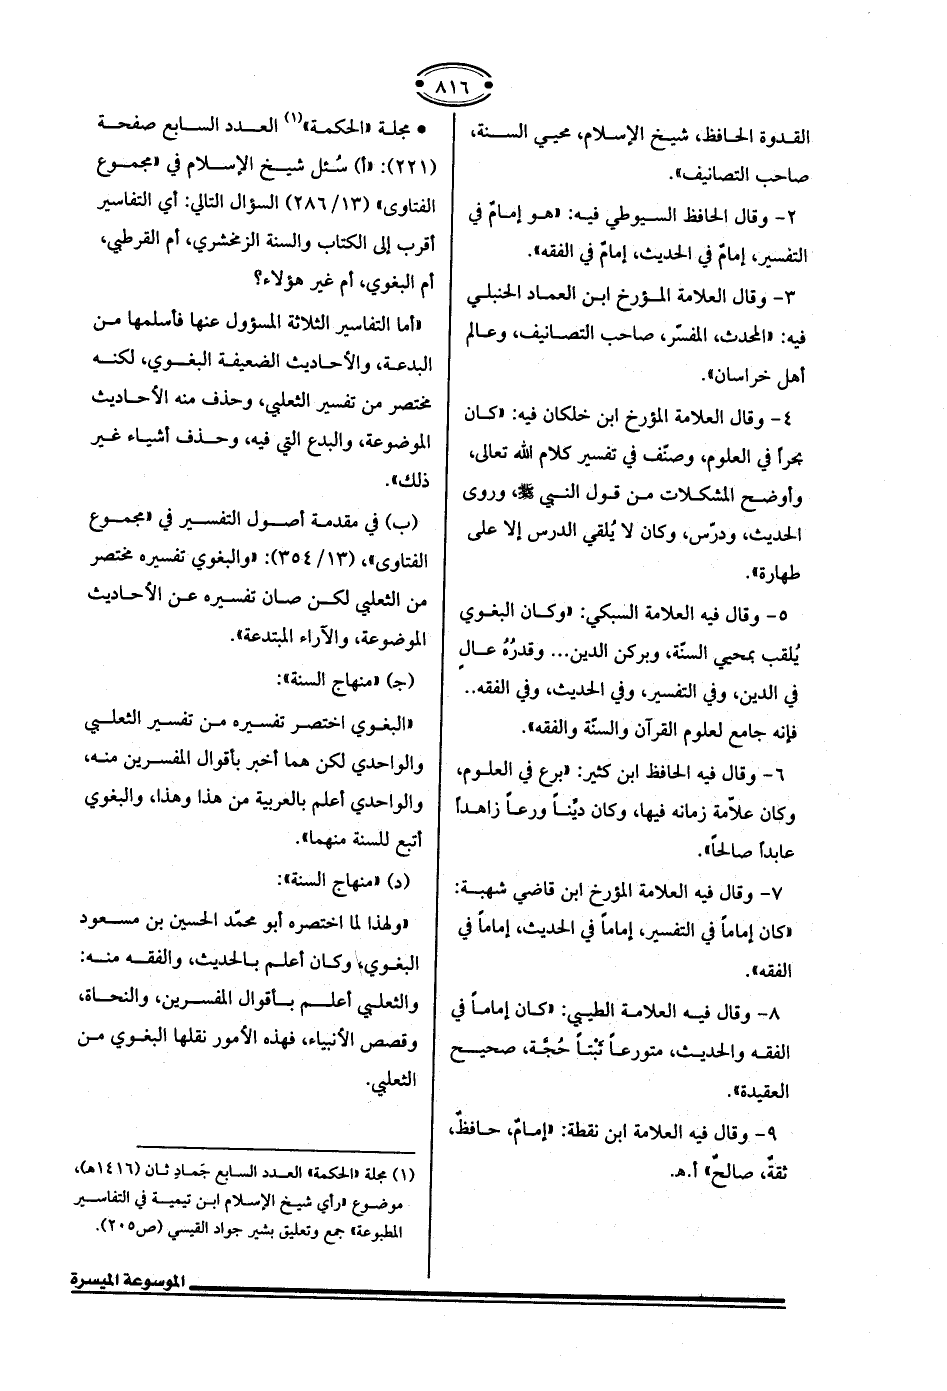 ٨١٦
القدوة الحافظ، شيخ الإسلام، محيي السنة،
صاحب التصانيف».
٢- وقال الحافظ السيوطي فيه: «هو إمامٌ في
التفسير، إمامٌ في الحديث، إمامٌ في الفقه».
٣- وقال العلامة المؤرخ ابن العماد الحنبلي
فيه: «المحدث، المفسّر، صاحب التصانيف، وعالم
أهل خراسان».
٤- وقال العلامة المؤرخ ابن خلكان فيه: «كان
بحراً في العلوم، وصنّف في تفسير كلام الله تعالى،
وأوضح المشكلات من قول النبي ﷺ، وروى
الحديث، ودرّس، وكان لا يُلقي الدرس إلا على
طهارة».
٥- وقال فيه العلامة السبكي: «وكان البغوي
يُلقب بمحيي السنّة، وبركن الدين... وقدرُهُ عالٍ
في الدين، وفي التفسير، وفي الحديث، وفي الفقه..
فإنه جامع لعلوم القرآن والسنّة والفقه».
٦- وقال فيه الحافظ ابن كثير: «برع في العلوم،
وكان علاّمة زمانه فيها، وكان ديِّناً ورعاً زاهداً
عابداً صالحاً».
٧- وقال فيه العلامة المؤرخ ابن قاضي شهبة:
«كان إماماً في التفسير، إماماً في الحديث، إماماً في
الفقه».
٨- وقال فيه العلامة الطيبي: «كان إماماً في
الفقه والحديث، متورعاً ثَبْتاً حُجَّة، صحيح
العقيدة».
٩- وقال فيه العلامة ابن نقطة: «إمامٌ، حافظٌ،
ثقةٌ، صالحٌ» أ.هـ.
• مجلة «الحكمة»(١) العدد السابع صفحة
(٢٢١): «أ) سُئل شيخ الإسلام في «مجموع
الفتاوى» (١٣/ ٢٨٦) السؤال التالي: أي التفاسير
أقرب إلى الكتاب والسنة الزمخشري، أم القرطبي،
أم البغوي، أم غير هؤلاء؟
«أما التفاسير الثلاثة المسؤول عنها فأسلمها من
البدعة، والأحاديث الضعيفة البغوي، لكنه
مختصر من تفسير الثعلبي، وحذف منه الأحاديث
الموضوعة، والبدع التي فيه، وحذف أشياء غير
ذلك».
(ب) في مقدمة أصول التفسير في «مجموع
الفتاوى»، (١٣/ ٣٥٤): «والبغوي تفسيره مختصر
من الثعلبي لكن صان تفسيره عن الأحاديث
الموضوعة، والآراء المبتدعة».
(جـ) «منهاج السنة»:
«البغوي اختصر تفسيره من تفسير الثعلبي
والواحدي لكن هما أخبر بأقوال المفسرين منه،
والواحدي أعلم بالعربية من هذا وهذا، والبغوي
أتبع للسنة منهما».
(د) «منهاج السنة»:
«ولهذا لما اختصره أبو محمّد الحسين بن مسعود
البغوي، وكان أعلم بالحديث، والفقه منه:
والثعلبي أعلم بأقوال المفسرين، والنحاة،
وقصص الأنبياء، فهذه الأمور نقلها البغوي من
الثعلبي.
(١) مجلة «الحكمة» العدد السابع جَمادِ ثان (١٤١٦هـ)،
موضوع «رأي شيخ الإسلام ابن تيمية في التفاسير
المطبوعة» جمع وتعليق بشير جواد القيسي (ص٢٠٥).
الموسوعة الميسرة